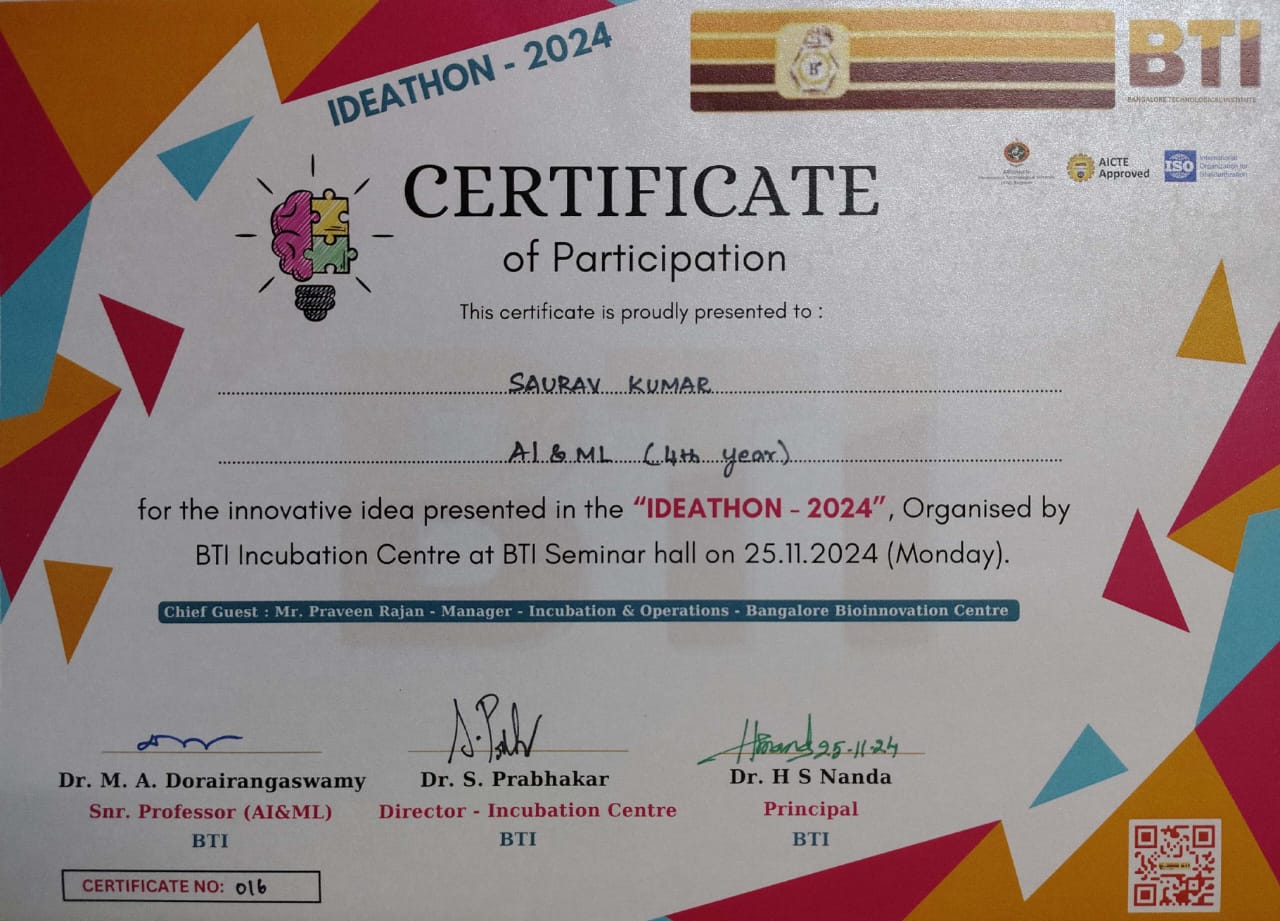 IDEATHON - 2024
BTI
BANGALORE TECHNOLOGICAL INSTITUTE
AICTE
Approved
ISO
International
Organization for
Standardization
CERTIFICATE
of Participation
This certificate is proudly presented to :
SAURAV KUMAR
AI & ML (4th year)
for the innovative idea presented in the “IDEATHON - 2024”, Organised by
BTI Incubation Centre at BTI Seminar hall on 25.11.2024 (Monday).
Chief Guest : Mr. Praveen Rajan - Manager - Incubation & Operations - Bangalore Bioinnovation Centre
25-11-24
Dr. M. A. Dorairangaswamy Dr. S. Prabhakar Dr. H S Nanda
Snr. Professor (AI&ML) Director - Incubation Centre Principal
BTI BTI BTI
CERTIFICATE NO: 016